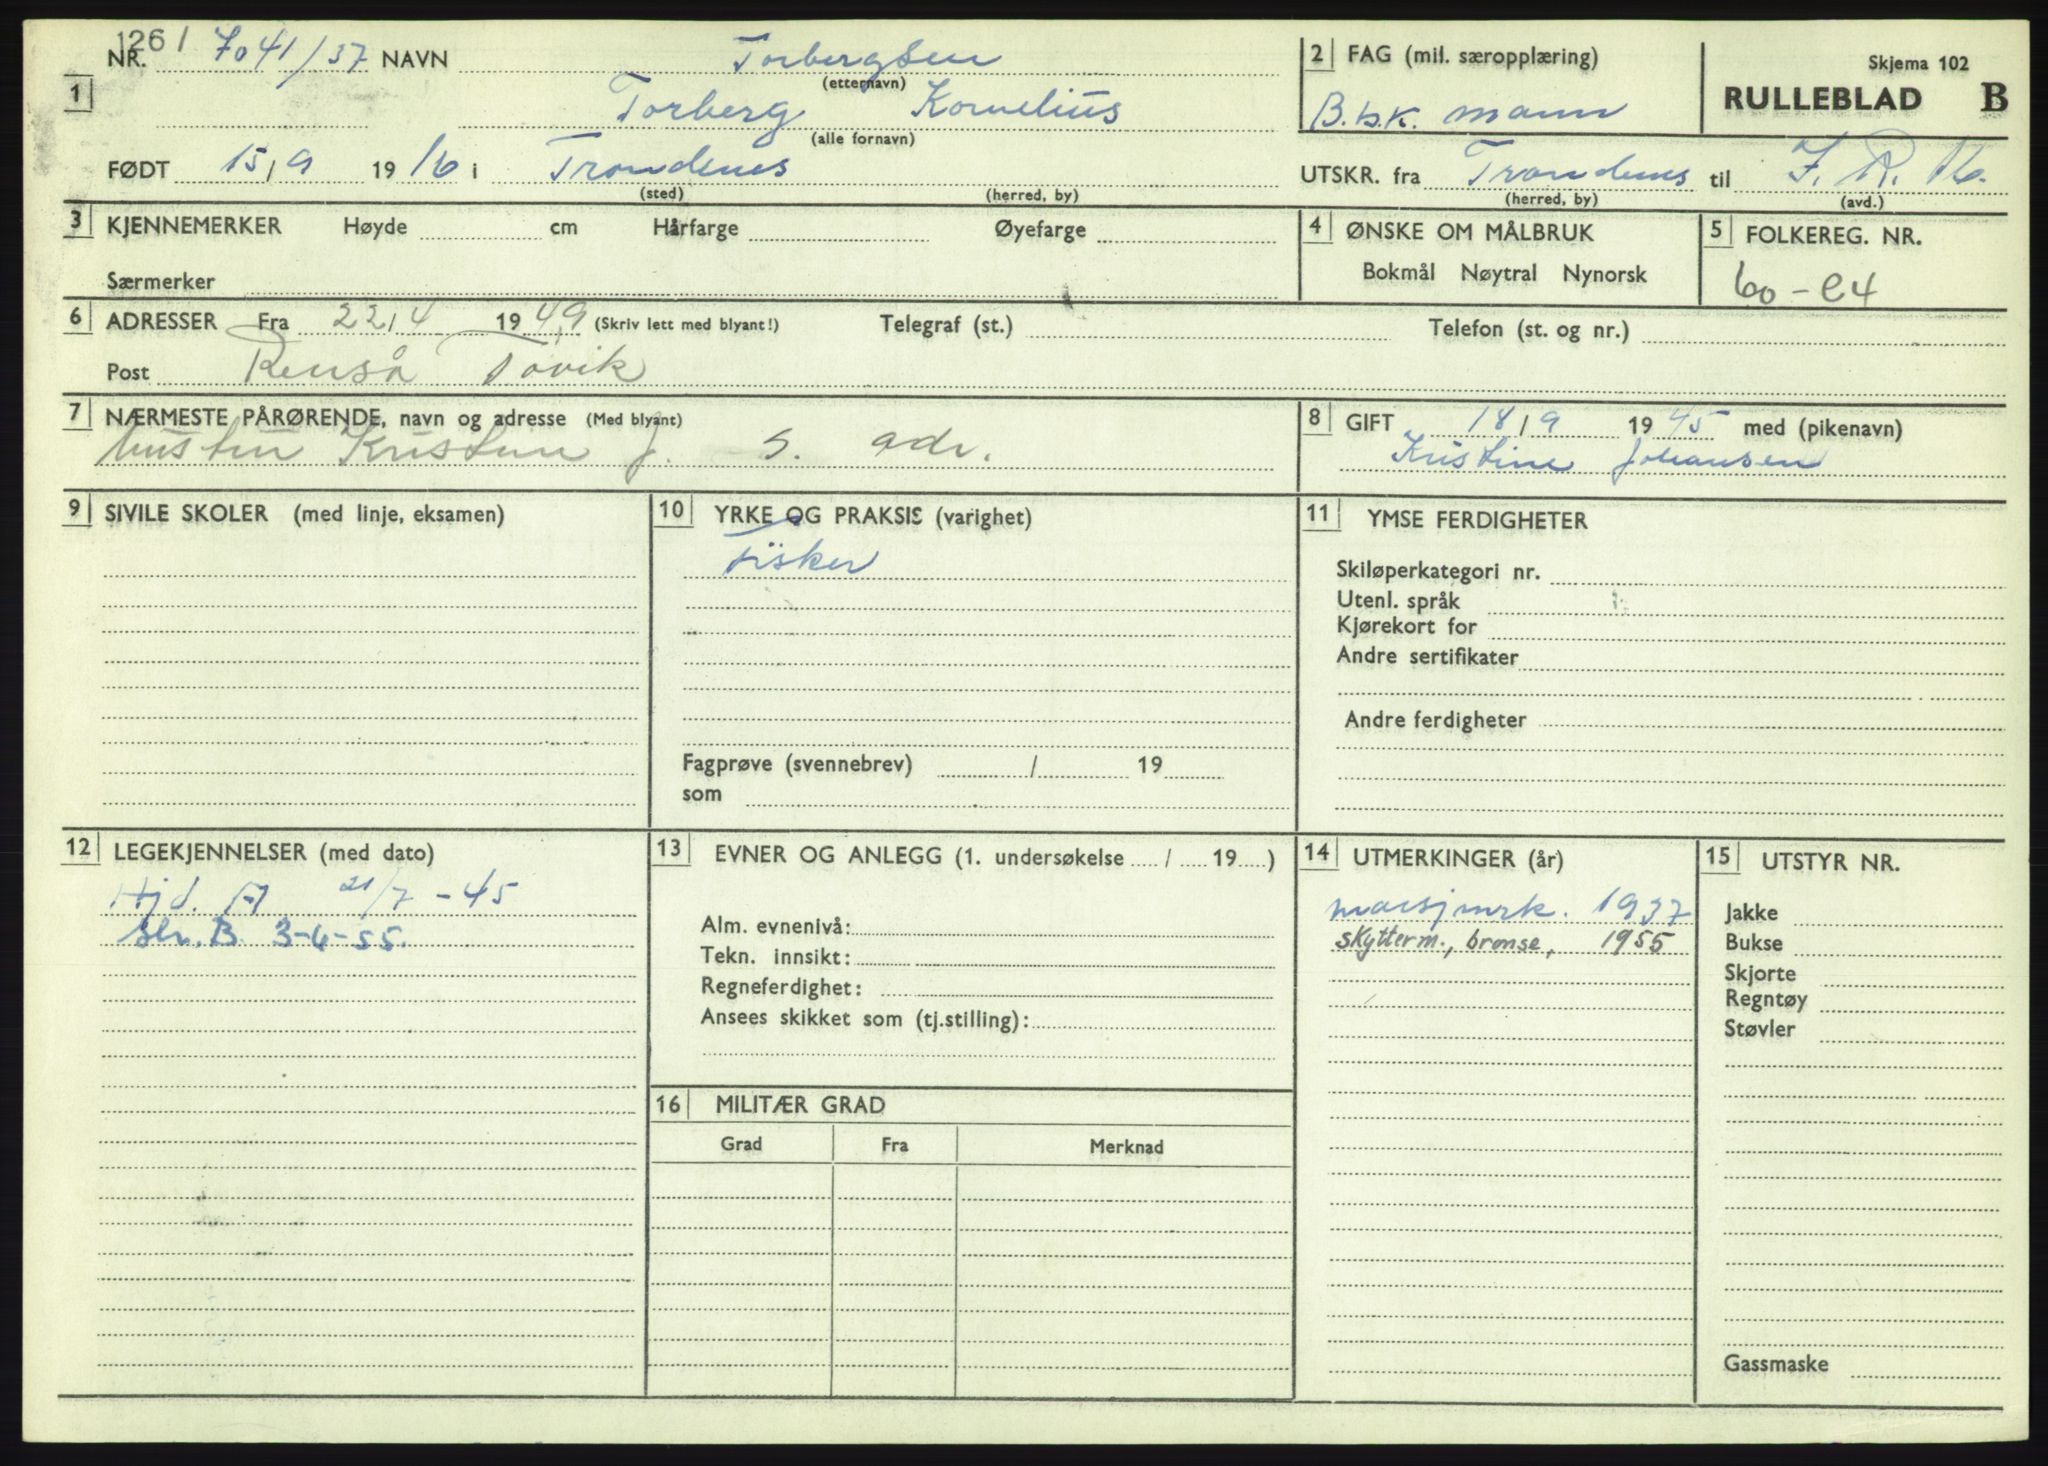 1261
NR. 7041/37 NAVN Torbergsen
(etternavn)
1 Torberg Kornelius
(alle fornavn)
FØDT 15/9 1916 i Trondenes
(sted) (herred, by)
2 FAG (mil. særopplæring)
B.b.k. mann
Skjema 102
RULLEBLAD B
UTSKR. fra Trondenes til I. R. 16.
(herred, by) (avd.)
3 KJENNEMERKER Høyde cm Hårfarge Øyefarge
Særmerker
4 ØNSKE OM MÅLBRUK
Bokmål Nøytral Nynorsk
5 FOLKEREG. NR.
60-e4
6 ADRESSER Fra 22/4 1949 (Skriv lett med blyant!) Telegraf (st.) Telefon (st. og nr.)
Post Renså Tovik
7 NÆRMESTE PÅRØRENDE, navn og adresse (Med blyant)
Hustru Kristine J. S. adr.
8 GIFT 18/9 1945 med (pikenavn)
Kristine Johansen
9 SIVILE SKOLER (med linje, eksamen)
10 YRKE OG PRAKSIS (varighet)
Fisker
Fagprøve (svennebrev) / 19
som
11 YMSE FERDIGHETER
Skiløperkategori nr.
Utenl. språk
Kjørekort for
Andre sertifikater
Andre ferdigheter
12 LEGEKJENNELSER (med dato)
Hjd. A 21/7 -45
B. 3-6-55.
13 EVNER OG ANLEGG (1. undersøkelse / 19 )
Alm. evnenivå:
Tekn. innsikt:
Regneferdighet:
Ansees skikket som (tj.stilling):
14 UTMERKINGER (år)
marsjmrk. 1937
skytterm., bronse, 1955
15 UTSTYR NR.
Jakke
Bukse
Skjorte
Regntøy
Støvler
Gassmaske
16 MILITÆR GRAD
Grad Fra Merknad